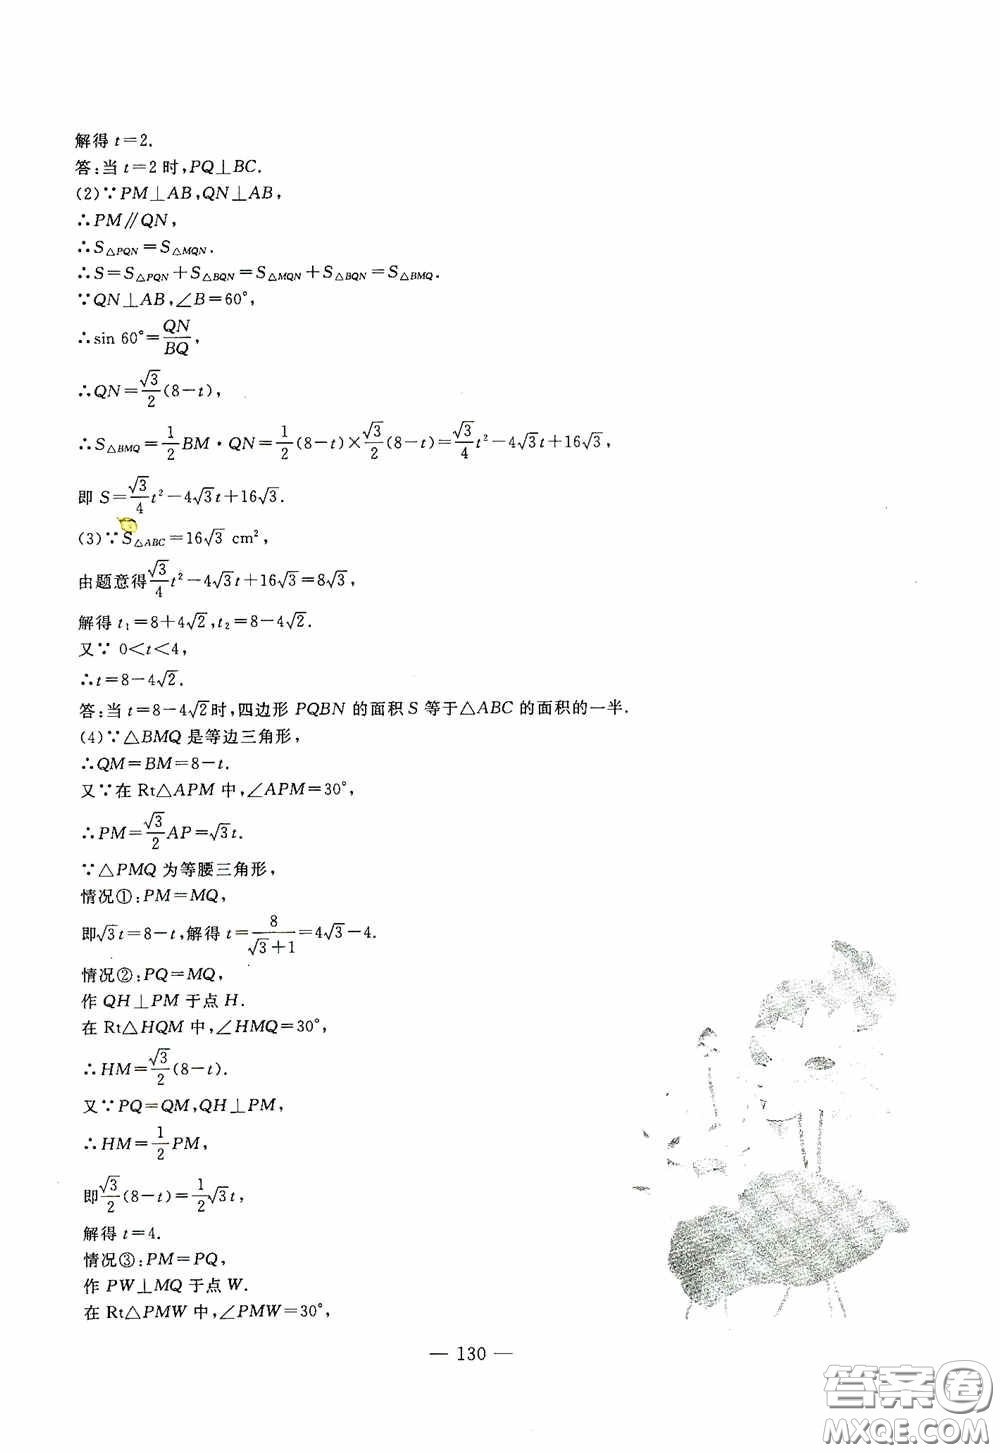 解得 t=2.
答:当 t=2 时,PQ⊥BC.
(2)∵PM⊥AB,QN⊥AB,
∴PM∥QN,
∴S△PQN=S△MQN.
∴S=S△PQN+S△BQN=S△MQN+S△BQN=S△BMQ.
∵QN⊥AB,∠B=60°,
∴sin 60°=QN/BQ,
∴QN=√3/2(8-t),
∴S△BMQ=1/2BM·QN=1/2(8-t)×√3/2(8-t)=√3/4t²-4√3t+16√3,
即 S=√3/4t²-4√3t+16√3.
(3)∵S△ABC=16√3 cm²,
由题意得√3/4t²-4√3t+16√3=8√3,
解得 t₁=8+4√2,t₂=8-4√2.
又∵ 0<t<4,
∴t=8-4√2.
答:当 t=8-4√2时,四边形 PQBN 的面积 S 等于△ABC 的面积的一半.
(4)∵△BMQ 是等边三角形,
∴QM=BM=8-t.
又∵在 Rt△APM 中,∠APM=30°,
∴PM=√3/2AP=√3t.
∵△PMQ 为等腰三角形,
情况①:PM=MQ,
即√3t=8-t,解得 t=8/(√3+1)=4√3-4.
情况②:PQ=MQ,
作 QH⊥PM 于点 H.
在 Rt△HQM 中,∠HMQ=30°,
∴HM=√3/2(8-t).
又∵PQ=QM,QH⊥PM,
∴HM=1/2PM,
即√3/2(8-t)=1/2√3t,
解得 t=4.
情况③:PM=PQ,
作 PW⊥MQ 于点 W.
在 Rt△PMW 中,∠PMW=30°,
— 130 —
答案圈
MXQE.COM